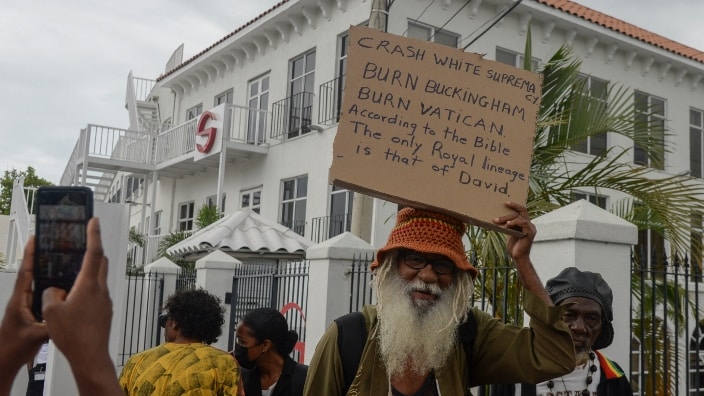 CRASH WHITE SUPREMACY
BURN BUCKINGHAM.
BURN VATICAN.
According to the Bible
The only Royal lineage
is that of David.